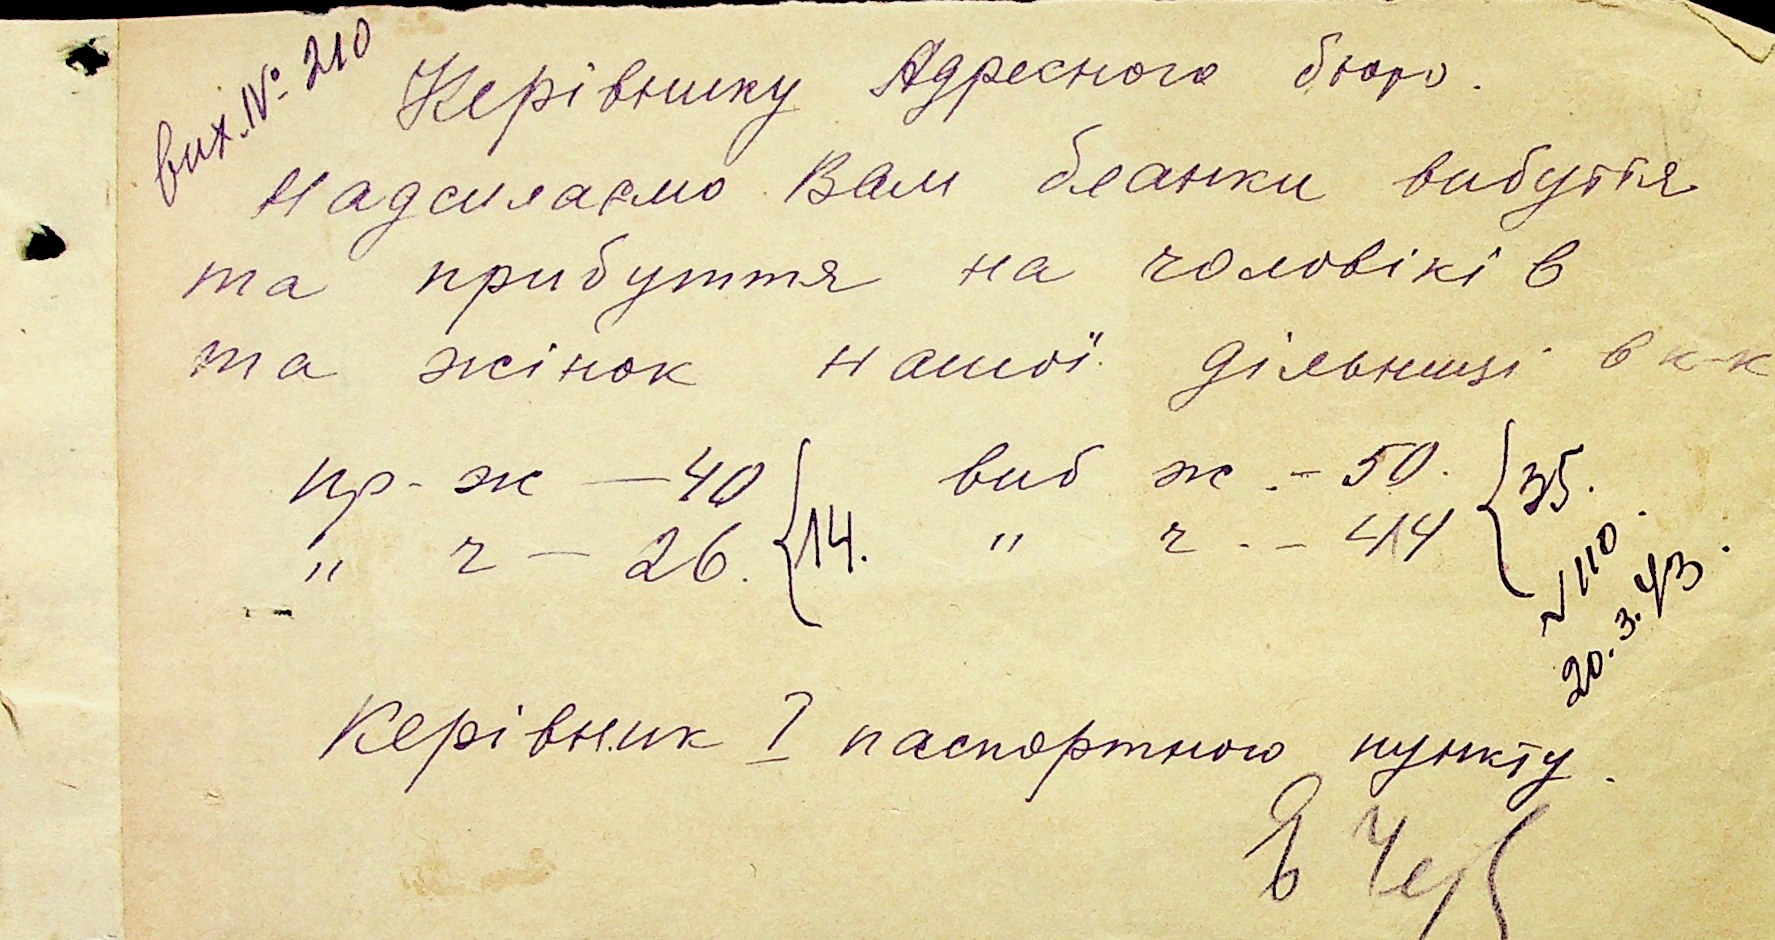 вих. № 210
Керівнику Адресного бюро.
Надсилаємо Вам бланки вибуття
та прибуття на чоловіків
та жінок нашої дільниці в к-к
пр- ж — 40 {14. виб ж. - 50. {35.
" ч — 26. " ч. - 44
№ 110.
20.3.43.
Керівник I паспортного пункту.